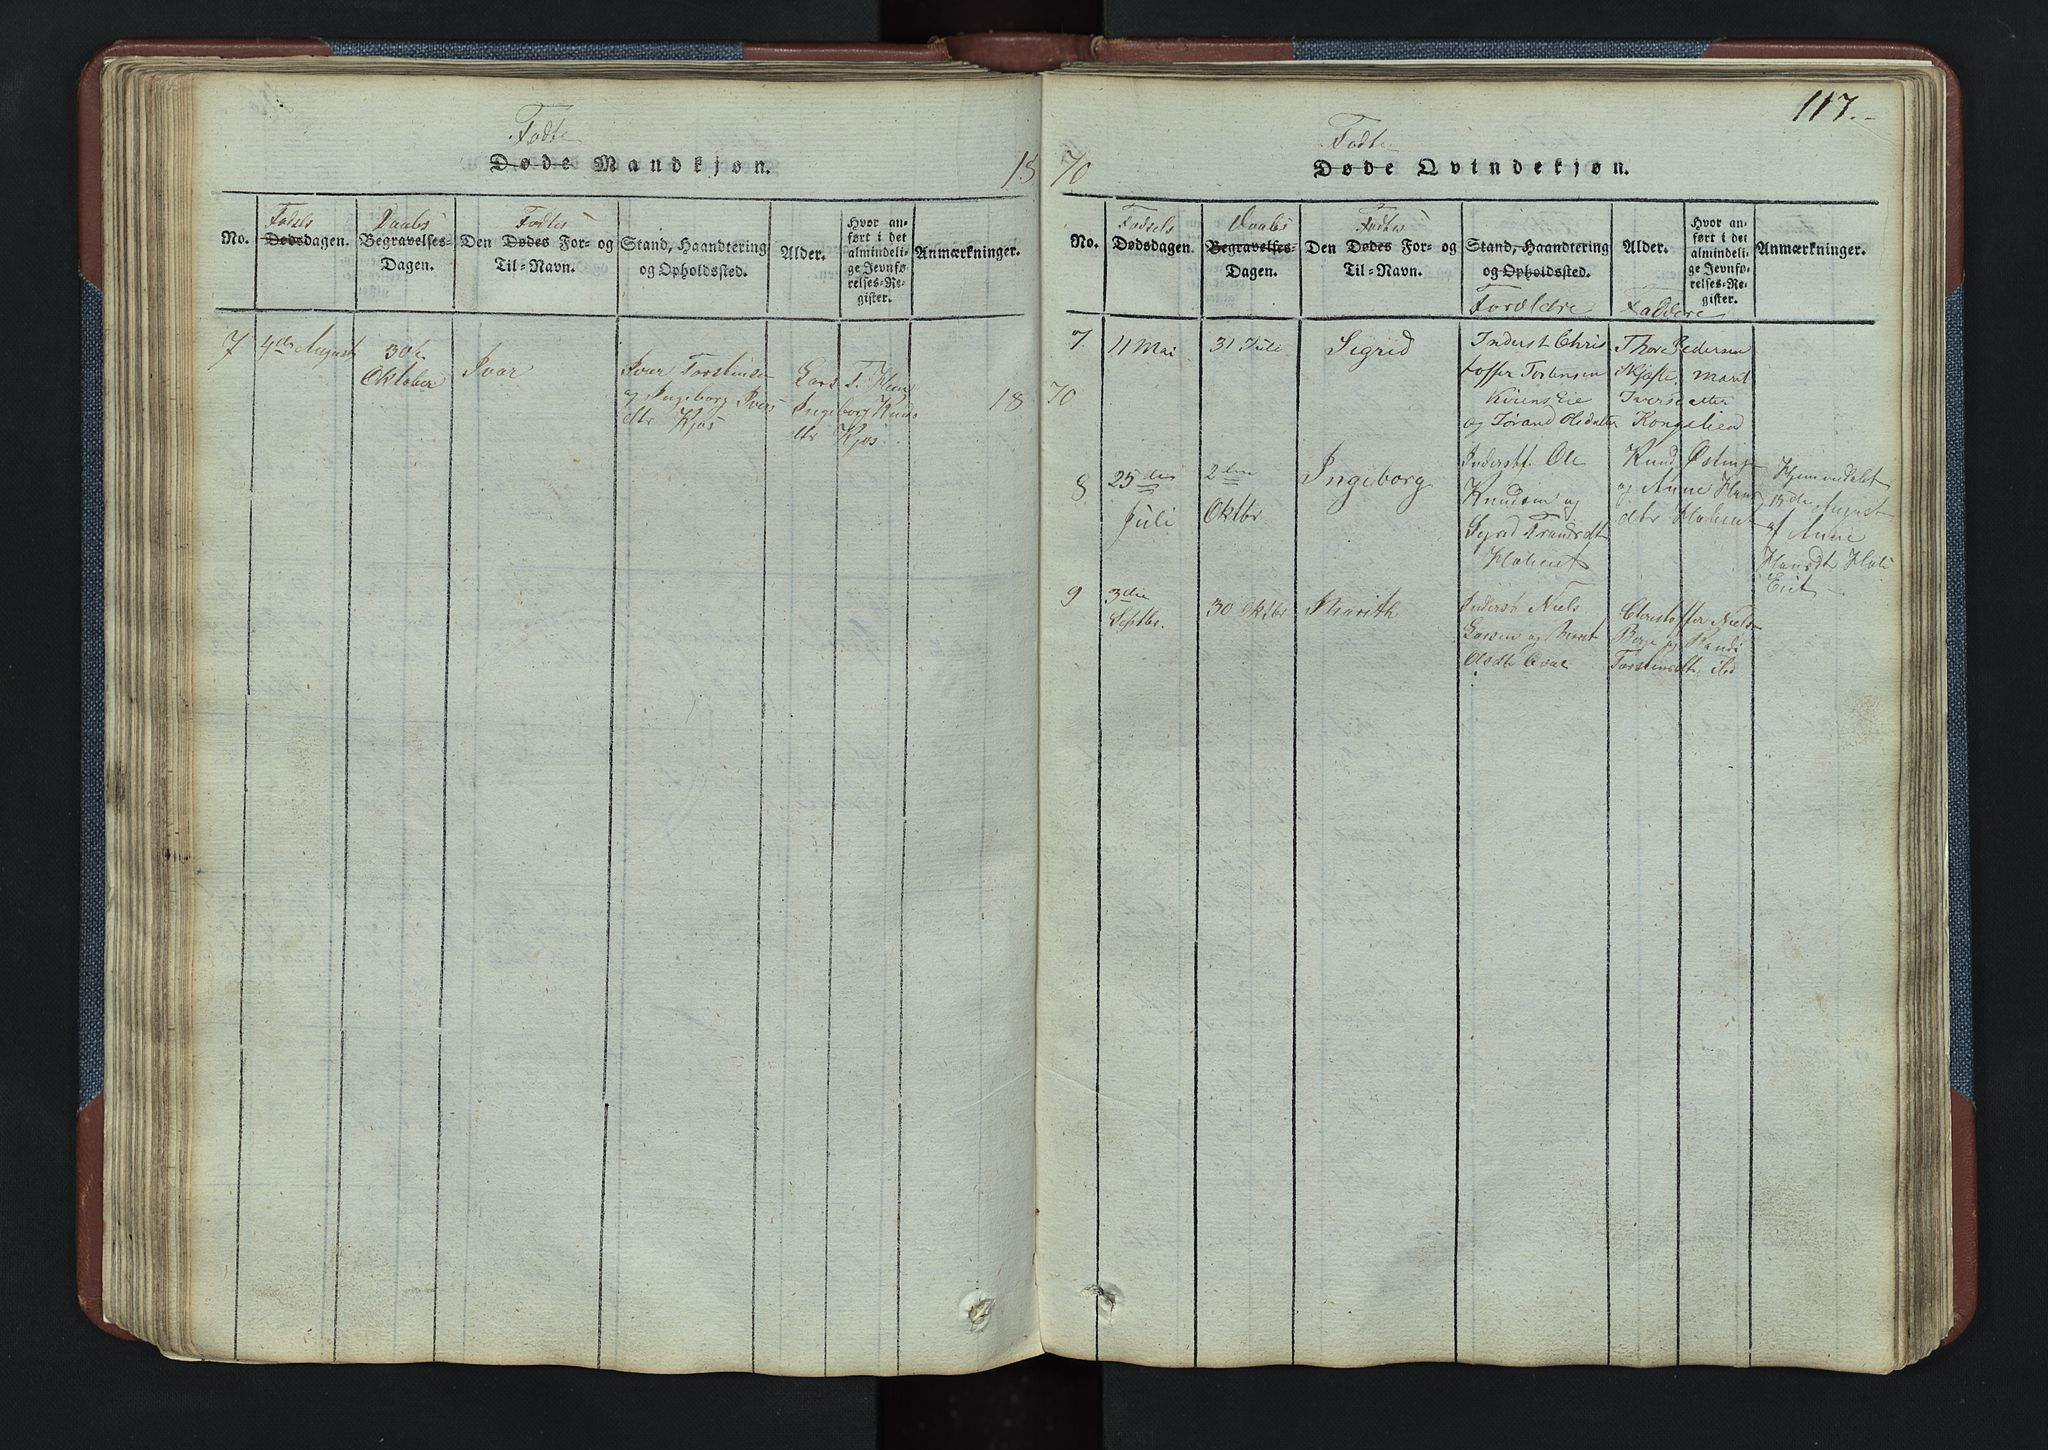 Fødte
Døde Mandkjøn.
18
No.
Fødsels
Dødsdagen.
Daabs
Begravelses-
Dagen.
Fødtes
Den Dødes For- og
Til-Navn.
Stand, Haandtering
og Opholdssted.
Alder.
Hvor an-
ført i det
almindeli-
ge Jevnfø-
relses-Re-
gister.
Anmærkninger.
7
4de August
30te
Oktober
Ivar
Ivar Torstensen
og Ingeborg Ivers
dtr Kjøs
Lars T.
Ingeborg Knuds
dtr Kjøs
18
117.
Fødte
Døde Qvindekjøn.
70
No.
Fødsels
Dødsdagen.
Daabs
Begravelses-
Dagen.
Fødtes
Den Dødes For- og
Til-Navn.
Stand, Haandtering
og Opholdssted.
Forældre
Alder.
Faddere
Hvor an-
ført i det
almindeli-
ge Jevnfø-
relses-Re-
gister.
Anmærkninger.
70
7
11 Mai
31 Juli
Sigrid
Inderst Chris
toffer Torstensen
Eie
og Jørand Olsdatter
Thore Pedersen
marit
Iversdatter
8
25de
Juli
2den
Oktbr
Ingeborg
Inderst. Ole
Knudsen og
Sigrid
Knud
og Anne Hans
dtr
Hjemmedøbt
13de August
af Anne
Hansdt
Eiet
9
3die
Septbr.
30 Oktbr
Marith
Inderst Niels
Larsen og Marit
Olsdtr
Christoffer Niels
og Randi
Torstensdtr